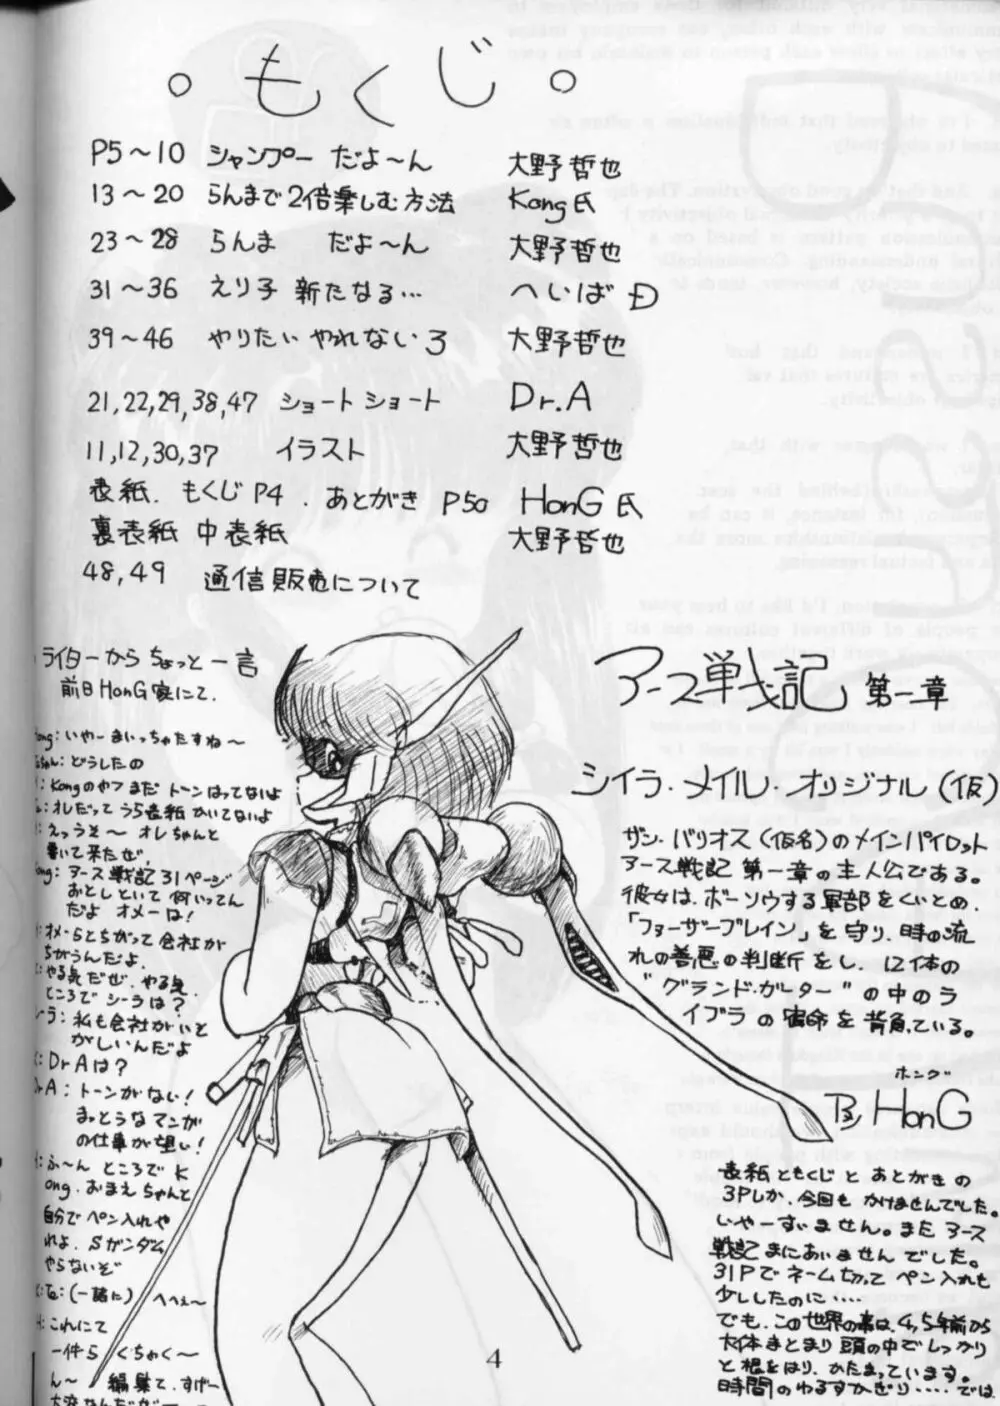 。もくじ。
P5～10 シャンプー だよ～ん 大野哲也
13～20 らんまで2倍楽しむ方法 Kong氏
23～28 らんま だよ～ん 大野哲也
31～36 えり子 新たなる… へいばÐ
39～46 やりたい やれない 3 大野哲也
21,22,29,38,47 ショートショート Dr.A
11,12,30,37 イラスト 大野哲也
表紙. もくじP4. あとがき P50 HonG氏
裏表紙 中表紙 大野哲也
48,49 通信販売について
ライターからちょっと一言
前日HonG家にて.
ong: いやーまいっちゃたすね～
ちゃん: どうしたの
: Kongのやつまだ トーンはってないよ
: オレだって うら表紙かいてないよ
: えっうそ～ オレちゃんと
書いて来たぜ,
ong: アース戦記31ページ
おとしといて 何いってん
だよ オメーは!
: オメーらとちがって会社が
ちがうんだよ.
: やる気だぜ. やる気.
ところで シーラは?
ーラ: 私も会社がいと
がしいんだよ
: DrAは?
DrA: トーンがない!
まっとうなマンガ
の仕事が望い!
: ふ～ん ところで K
ong. おまえちゃんと
自分で ペン入れや
れよ. Sガンダム
やらないぞ
: Te: (一諸に) へへぇ～
H: これにて
一件ら くちゃく～
ん～ 編集て. すげー
大変なんだがー
アース戦記 第一章
シイラ・メイル・オリジナル (仮)
ザン・バリオス (仮名) のメインパイロット
アース戦記 第一章の主人公である。
彼女は. ボーソウする軍部をくいとめ.
「フォーザーブレイン」を守り. 時の流
れの善悪の判断をし. 12体の
"グランド・ガーター" の中のラ
イブラ の宿命を背負っている。
ホング
By HonG
表紙ともくじとあとがきの
3Pしか. 今回も かけませんでした。
いやーすいません。また アース
戦記まにあいませんでした。
31Pでネーム切って ペン入れも
少ししたのに‥‥
でも. この世界の事は. 4,5年前から
大体まとまり頭の中でしっかり
と根をはり. かたまっています。
時間のゆるすかぎり‥‥ では.
4